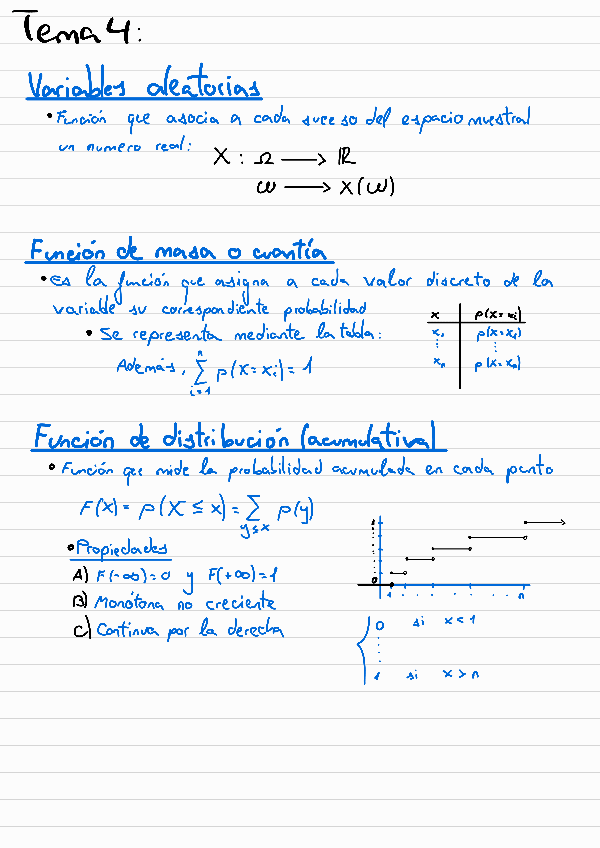 Tema 4:
Variables aleatorias
• Función que asocia a cada suceso del espacio muestral
un numero real:
X : Ω → ℝ
ω → X(ω)
Función de masa o cuantía
• Es la función que asigna a cada valor discreto de la
variable su correspondiente probabilidad
• Se representa mediante la tabla:
x p(X=xi)
x₁ p(X=x₁)
⋮ ⋮
xₙ p(X=xₙ)
Además, ∑ⁿᵢ₌₁ p(X=xi) = 1
Función de distribución (acumulativa)
• Función que mide la probabilidad acumulada en cada punto
F(x) = p(X ≤ x) = ∑ y≤x p(y)
• Propiedades
A) F(-∞)=0 y F(+∞)=1
B) Monótona no creciente
C) Continua por la derecha
1
0
1 . . . . . . n
0 si x < 1
⋮
1 si x > n